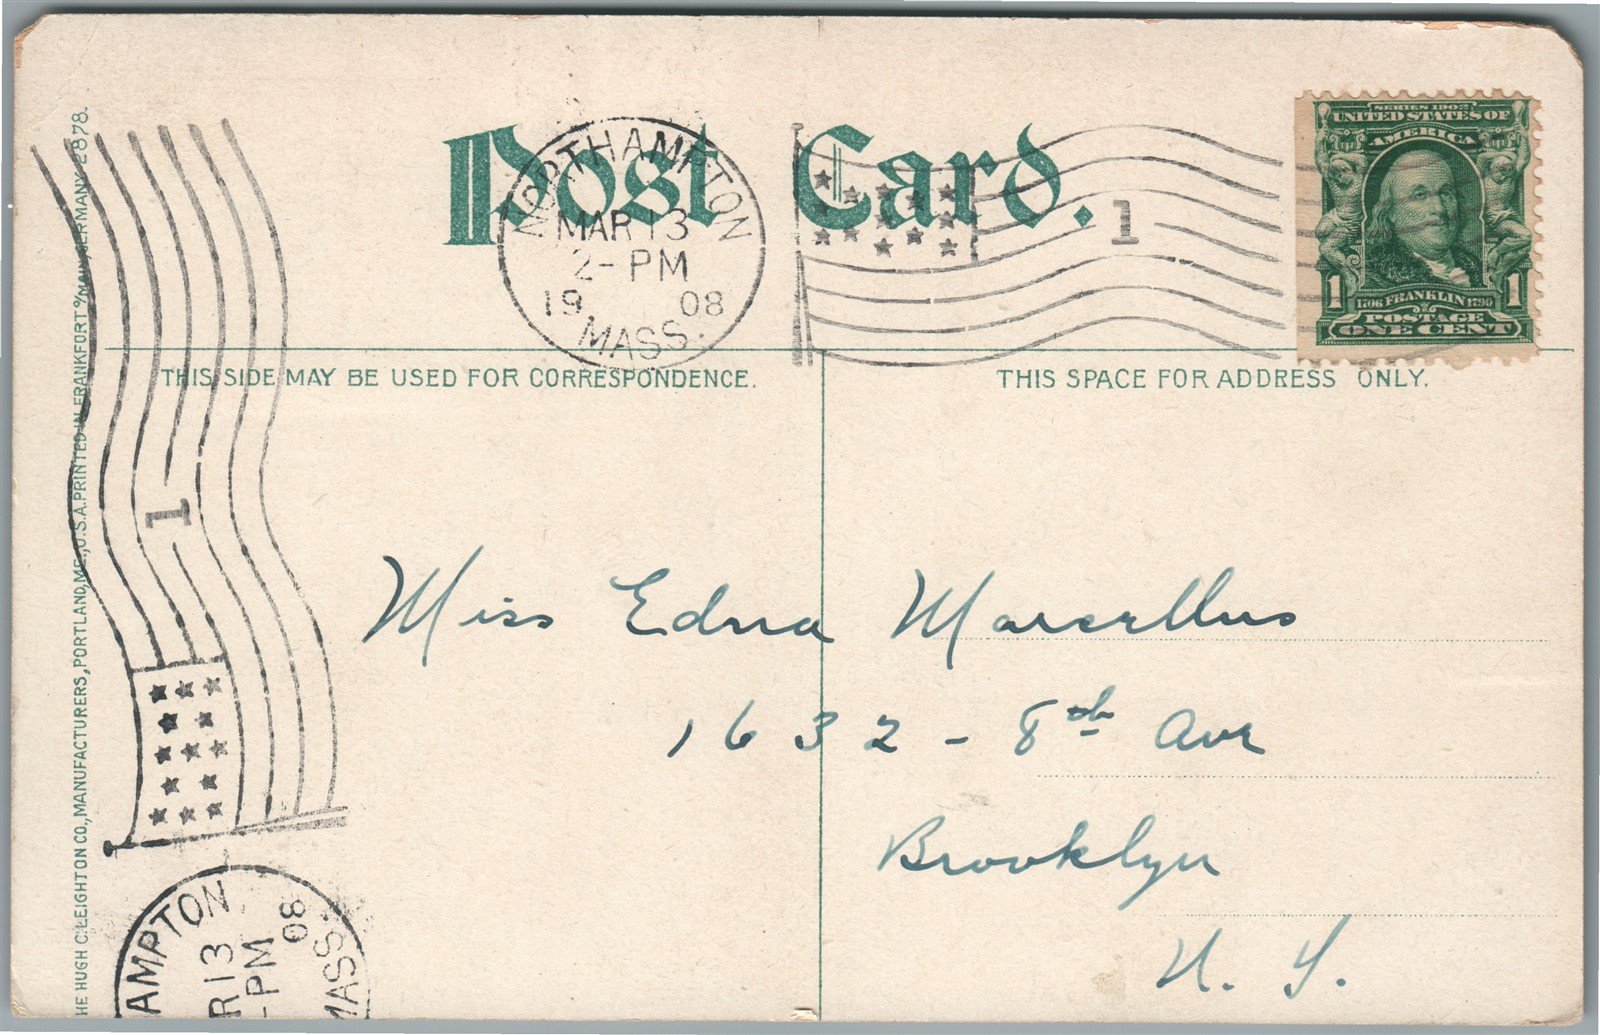 Post Card.
NORTHAMPTON
MAR 13
2-PM
19 08
MASS.
1
SERIES 1902
UNITED STATES OF
AMERICA
1 1706 FRANKLIN 1790 1
POSTAGE
ONE CENT
THIS SIDE MAY BE USED FOR CORRESPONDENCE.
THIS SPACE FOR ADDRESS ONLY.
Miss Edna Marcellus
1632 - 8th Ave
Brooklyn
N. Y.
HE HUGH C. LEIGHTON CO., MANUFACTURERS, PORTLAND, ME., U.S.A. PRINTED IN FRANKFORT o/MAIN, GERMANY 2878.
1
AMPTON
R 13
-PM
08
MASS.